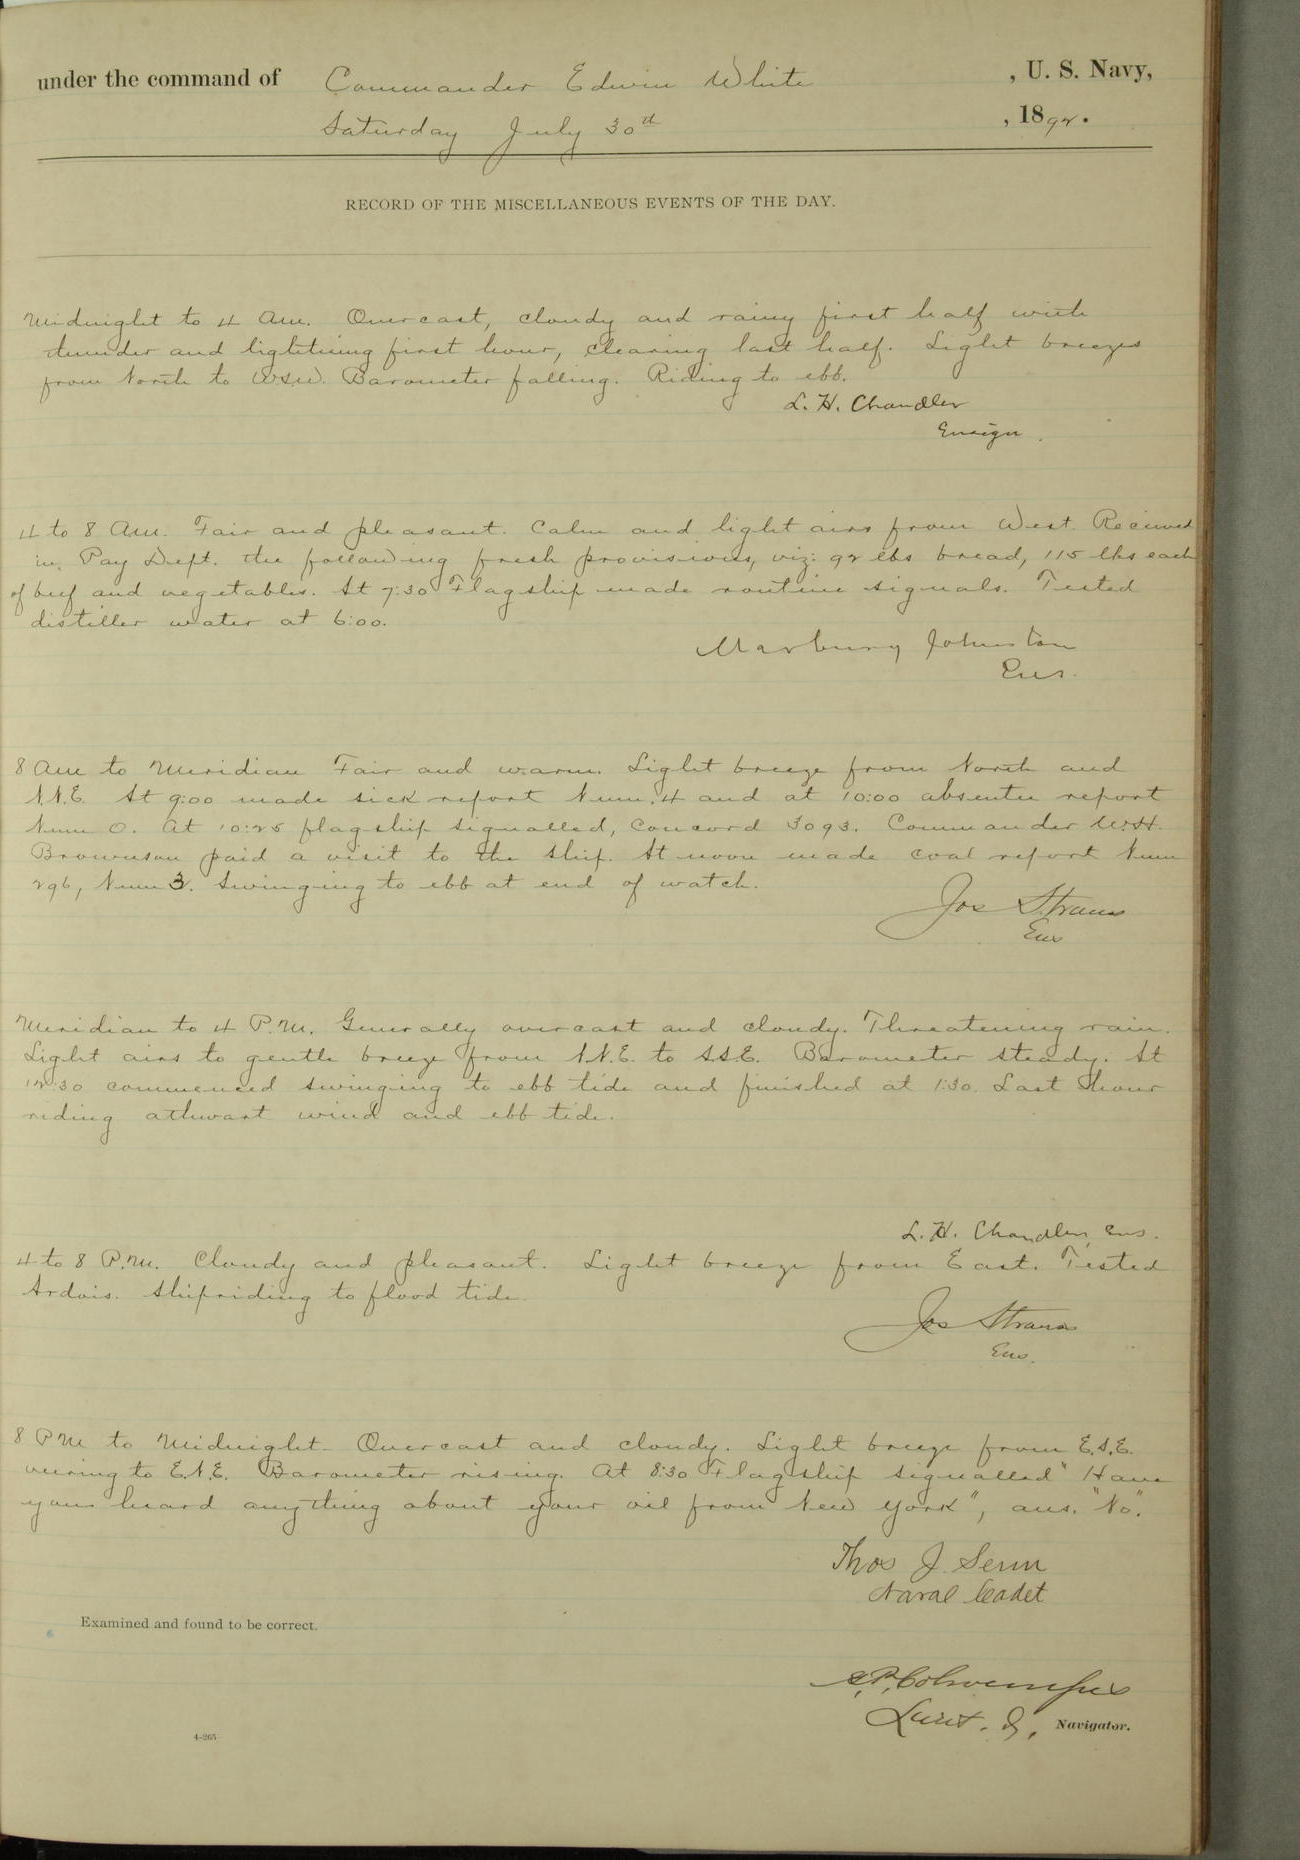 under the command of Commander Edwin White , U. S. Navy,
Saturday July 30th , 1892.
RECORD OF THE MISCELLANEOUS EVENTS OF THE DAY.
Midnight to 4 Am. Overcast, cloudy and rainy first half with
thunder and lightning first hour, clearing last half. Light breezes
from North to WSW. Barometer falling. Riding to ebb.
L. H. Chandler
Ensign.
4 to 8 Am. Fair and pleasant. Calm and light airs from West. Received
in Pay Dept. the following fresh provisions, viz: 92 lbs bread, 115 lbs each
of beef and vegetables. At 7:30 Flagship made routine signals. Tested
distiller water at 6:00.
Marbury Johnston
Ens.
8 Am to Meridian Fair and warm. Light breeze from North and
N.N.E. At 9:00 made sick report Num. 4 and at 10:00 absentee report
Num 0. At 10:25 flagship signalled, Concord 3093. Commander W.H.
Brownson paid a visit to the ship. At noon made coal report Num
296, Num 3. Swinging to ebb at end of watch.
Jos Strauss
Ens
Meridian to 4 P.M. Generally overcast and cloudy. Threatening rain.
Light airs to gentle breeze from N.N.E. to S.S.E. Barometer steady. At
12:30 commenced swinging to ebb tide and finished at 1:30. Last hour
riding athwart wind and ebb tide.
L. H. Chandler, Ens.
4 to 8 P.M. Cloudy and pleasant. Light breeze from East. Tested
Ardois. Ship riding to flood tide.
Jos Strauss
Ens.
8 PM to Midnight. Overcast and cloudy. Light breeze from E.S.E.
veering to E.N.E. Barometer rising. At 8:30 Flagship signalled "Have
you heard anything about your oil from New York", ans. "No".
Thos J. Senn
Naval Cadet
Examined and found to be correct.
Lieut. , Navigator.
4-265